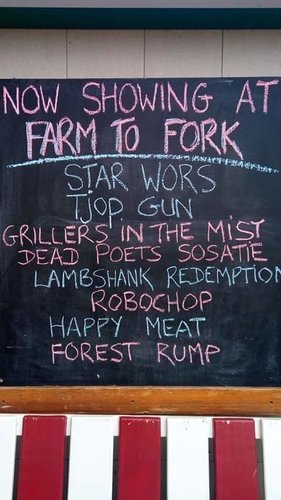 NOW SHOWING AT
FARM TO FORK
STAR WORS
TJOP GUN
GRILLERS IN THE MIST
DEAD POETS SOSATIE
LAMBSHANK REDEMPTION
ROBOCHOP
HAPPY MEAT
FOREST RUMP